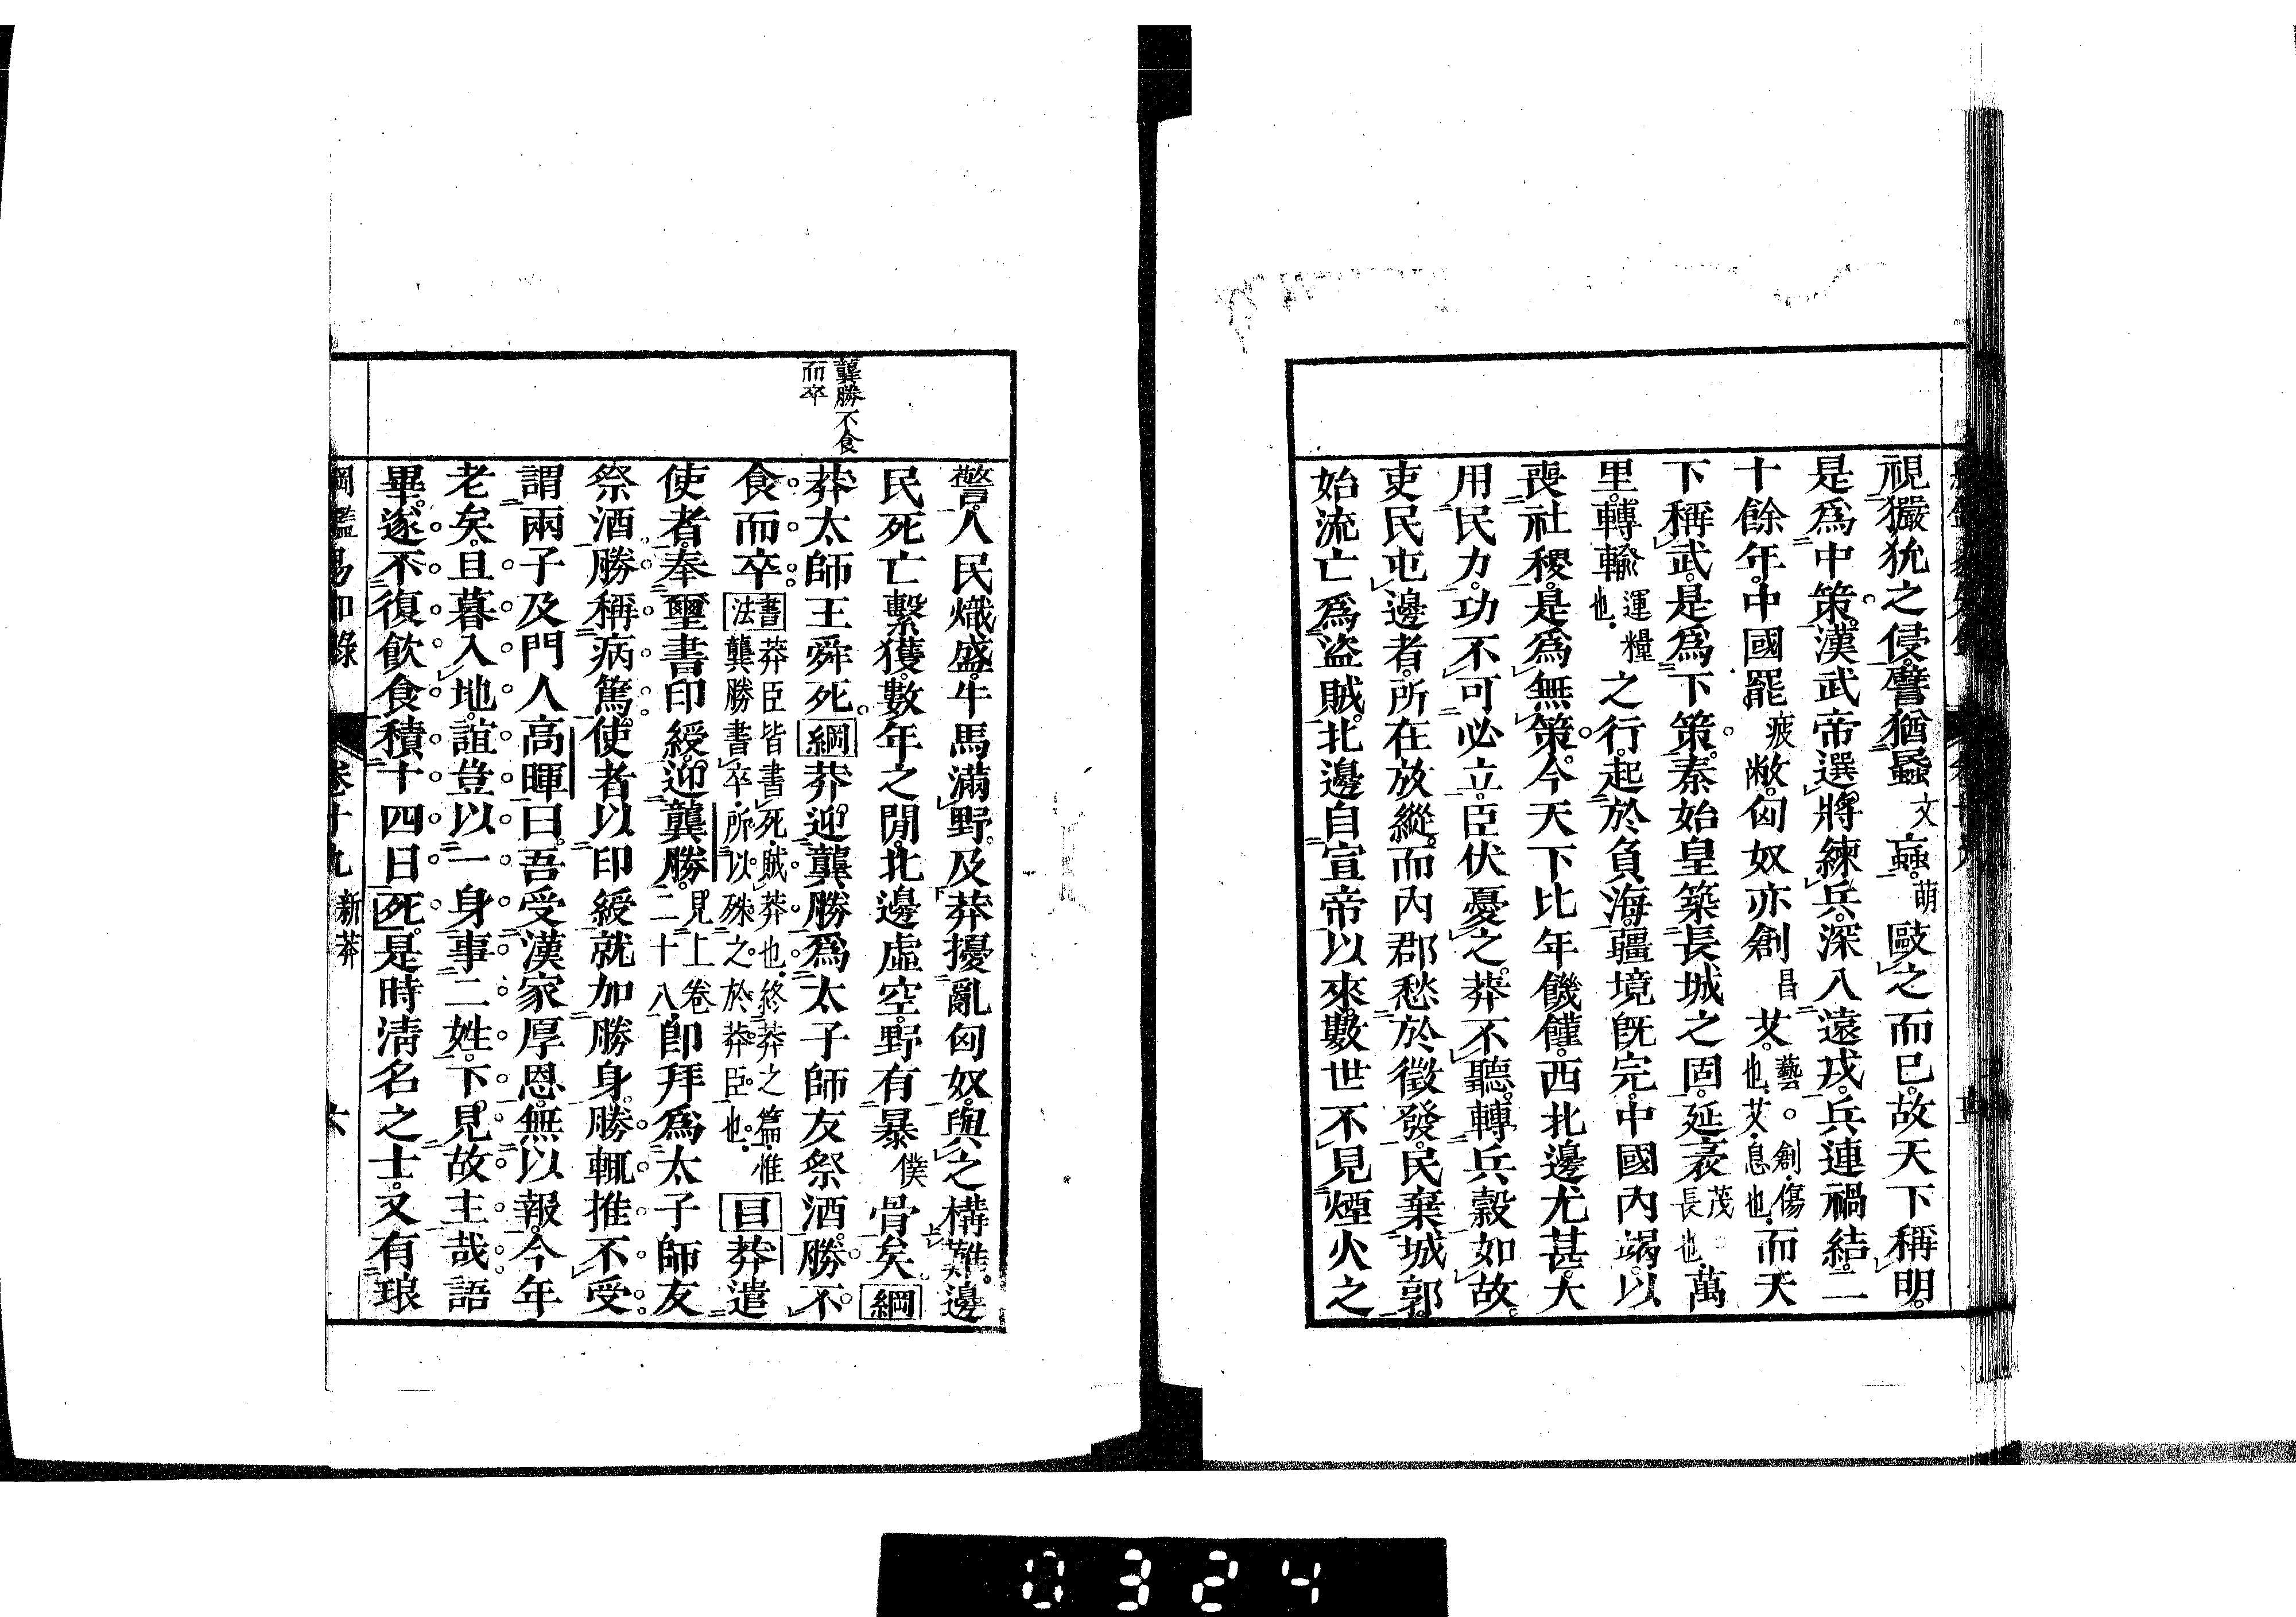 視獫狁之侵譬猶蟁文蝱萌敺之而已故天下稱明
是爲中策漢武帝選將練兵深入遠戎兵連禍結二
十餘年中國罷疲敝匈奴亦創昌艾藝○創傷也艾息也而天
下稱武是爲下策秦始皇築長城之固延袤茂長也萬
里轉輸運糧也之行起於負海疆境旣完中國內竭以
喪社稷是爲無策今天下比年饑饉西北邊尤甚大
用民力功不可必立臣伏憂之莽不聽轉兵穀如故
吏民屯邊者所在放縱而內郡愁於徵發民棄城郭
始流亡爲盜賊北邊自宣帝以來數世不見煙火之
龔勝不食
而卒
警人民熾盛牛馬滿野及莽擾亂匈奴與之構難邊
民死亡繫獲數年之閒北邊虛空野有暴僕骨矣綱
莽太師王舜死綱莽迎龔勝爲太子師友祭酒勝不
食而卒書法莽臣皆書死賊莽也終莽之篇惟龔勝書卒所以殊之於莽臣也目莽遣
使者奉璽書印綬迎龔勝見上卷二十八卽拜爲太子師友
祭酒勝稱病篤使者以印綬就加勝身勝輒推不受
謂兩子及門人高暉曰吾受漢家厚恩無以報今年
老矣旦暮入地誼豈以一身事二姓下見故主哉語
畢遂不復飲食積十四日死是時清名之士又有琅
綱鑑易知錄 卷十九 新莽 六
0324